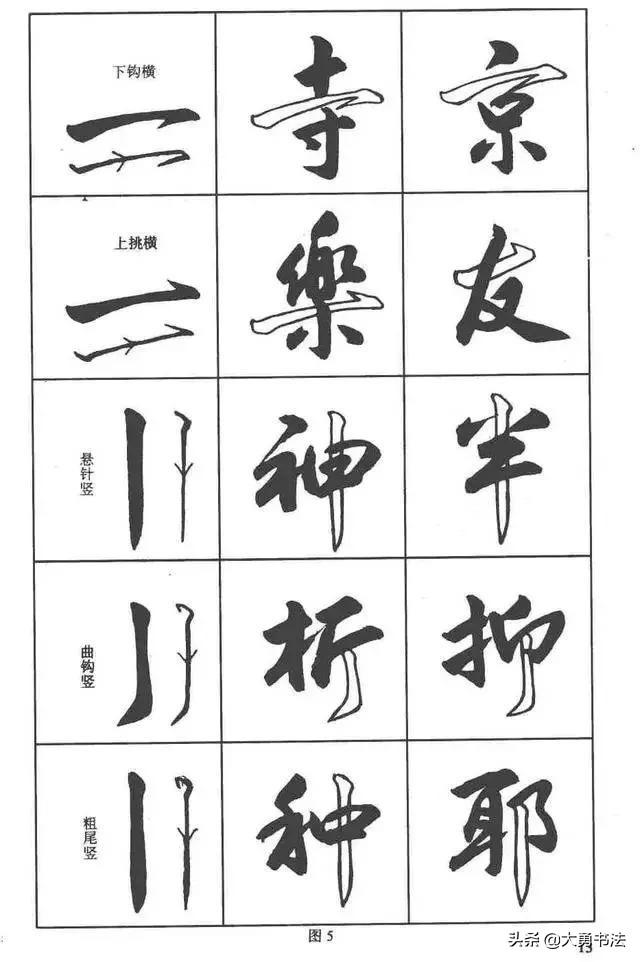 下钩横
寺
京
上挑横
樂
友
悬针竖
神
半
曲钩竖
析
抑
粗尾竖
种
耶
图 5
13
头条 @大勇书法